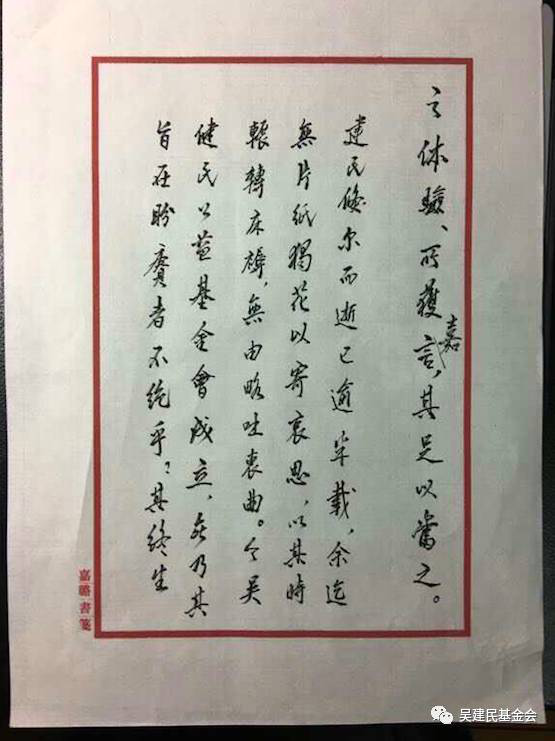 之体驗、所獲嘉言,其足以奮之。
建民倏尔而逝已逾半載,余迄
無片紙獨花以寄哀思,以其時
輾轉床褥,無由略吐衷曲。今吴
健民公益基金會成立,無乃其
旨在盼賡者不绝乎?其终生
嘉璐書箋
吴建民基金会